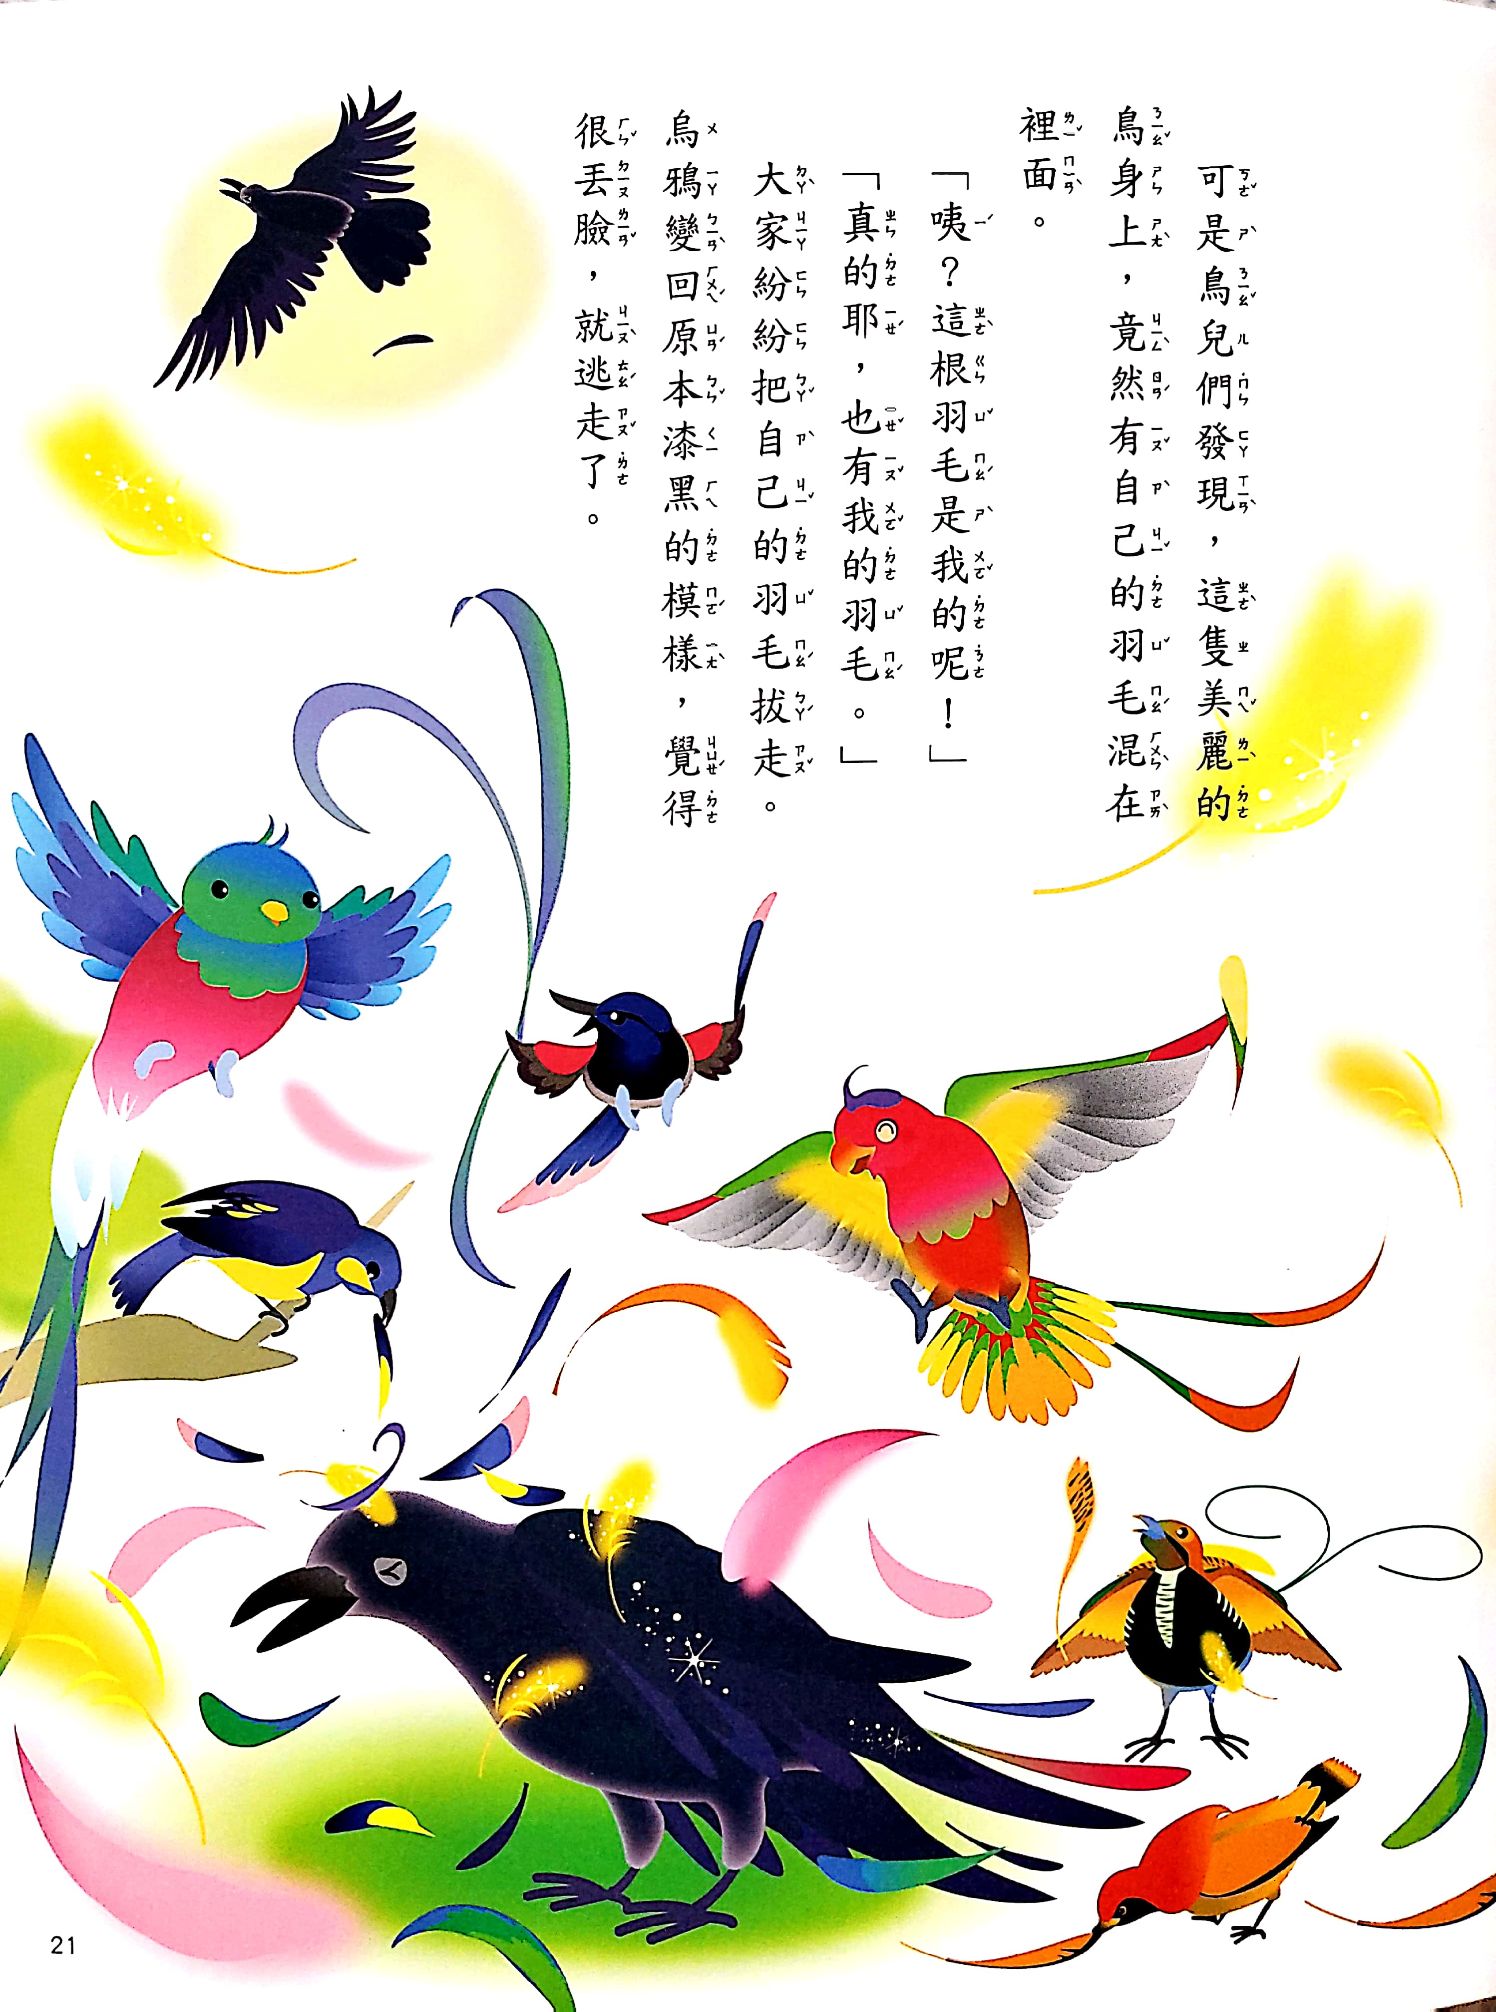 可是鳥兒們發現，這隻美麗的
鳥身上，竟然有自己的羽毛混在
裡面。
「咦？這根羽毛是我的呢！」
「真的耶，也有我的羽毛。」
大家紛紛把自己的羽毛拔走。
烏鴉變回原本漆黑的模樣，覺得
很丟臉，就逃走了。
21